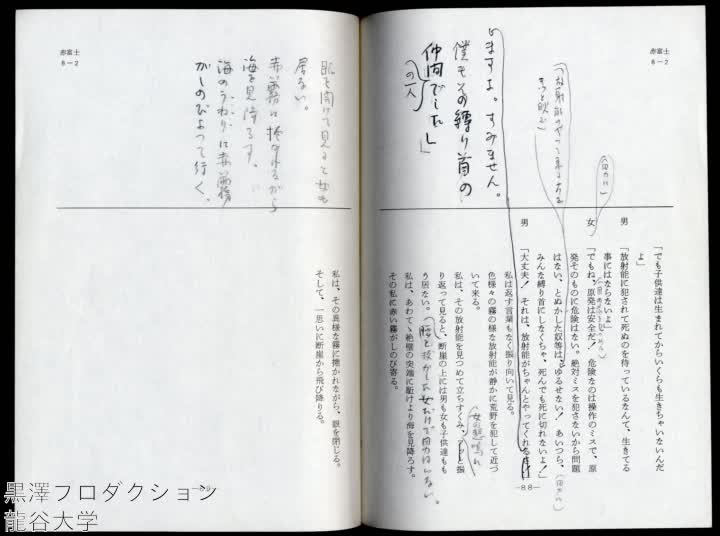 赤富士
6-2
しますよ。すみません。
僕もその縛り首の
仲間でした」
の一人
男
「でも子供達は生まれてからいくらも生きちゃいないんだ
よ」
女
「放射能に犯されて死ぬのを待っているなんて、生きてる
事にはならないよ」
「でもね、原発は安全だ! 危険なのは操作のミスで、原
発そのものに危険はない。絶対ミスを犯さないから問題
はない、とぬかした奴等は、ゆるせない! あいつら、
みんな縛り首にしなくちゃ、死んでも死に切れないよ!」
男
「大丈夫! それは、放射能がちゃんとやってくれる
私は返す言葉もなく振り向いて見る。
色様々の霧の様な放射能が静かに荒野を犯して近づ
いて来る。
私は、その放射能を見つめて立ちすくみ、
り返って見ると、断崖の上には男も女も子供達ももう居ない。
私は、あわてゝ絶壁の突端に駈けより海を見降ろす。
その私に赤い霧がしのび寄る。
女の悲鳴
-88-
赤富士
6-2
眼を開けて見ると女も
居ない。
赤い霧に捲かれながら
海を見降ろす。
海のうねりに赤い霧
がしのびよって行く。
私は、その異様な霧に捲かれながら、眼を閉じる。
そして、一思いに断崖から飛び降りる。
黒澤プロダクション
龍谷大学